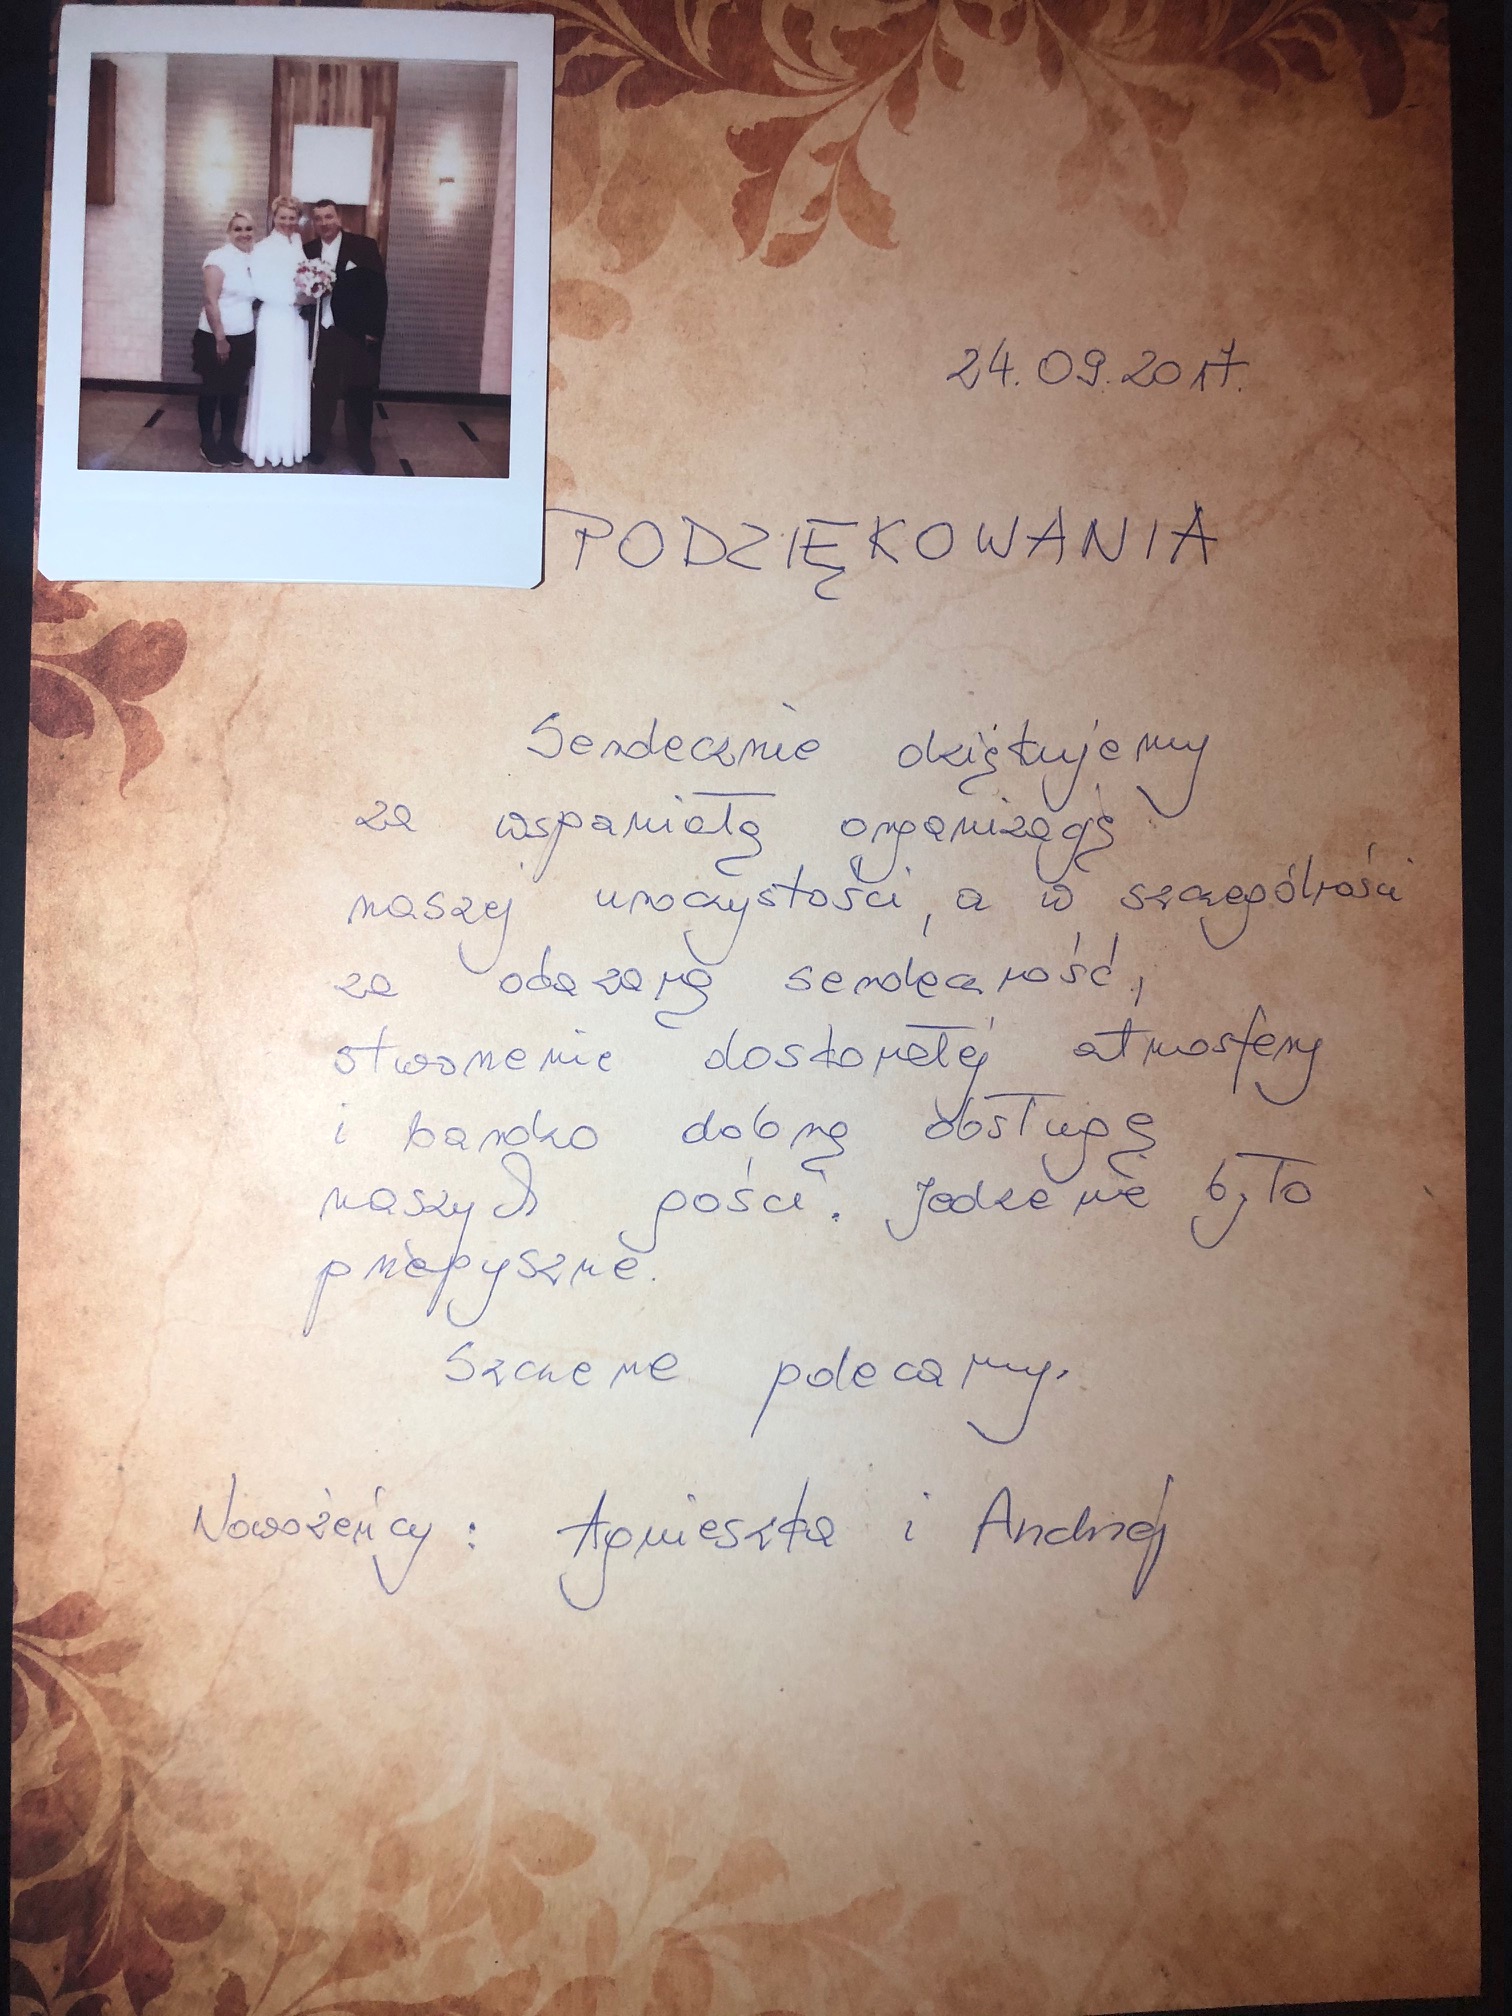 24.09.2017.
PODZIĘKOWANIA
Serdecznie dziękujemy
za wspaniałą organizację
naszej uroczystości, a w szczególności
za okazaną serdeczność,
stworzenie doskonałej atmosfery
i bardzo dobrą obsługę
naszych gości. Jedzenie było
przepyszne.
Szczerze polecamy.
Nowożeńcy: Agnieszka i Andrzej